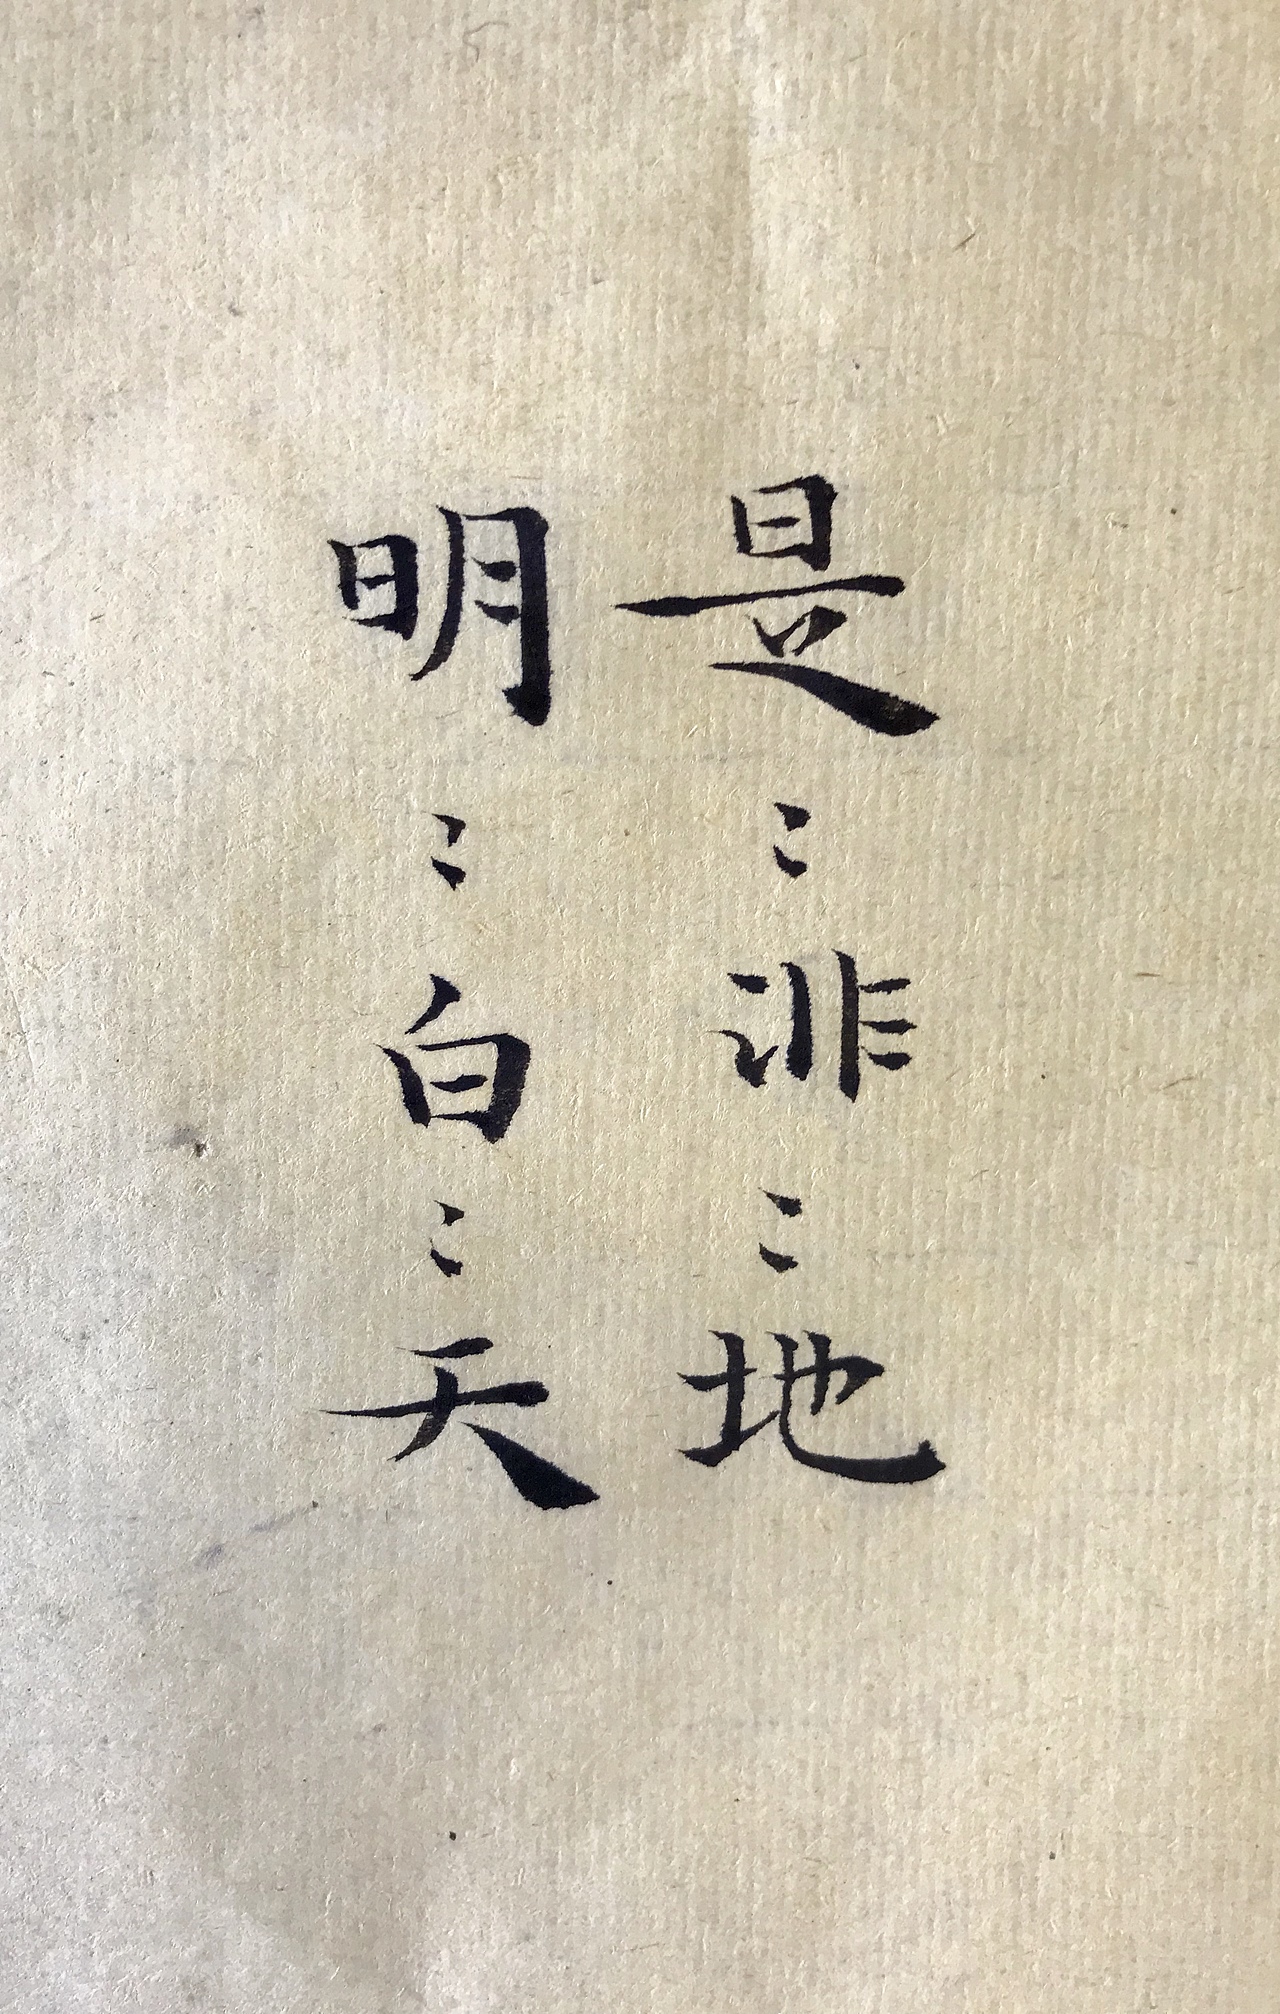 是〻非〻地
明〻白〻天